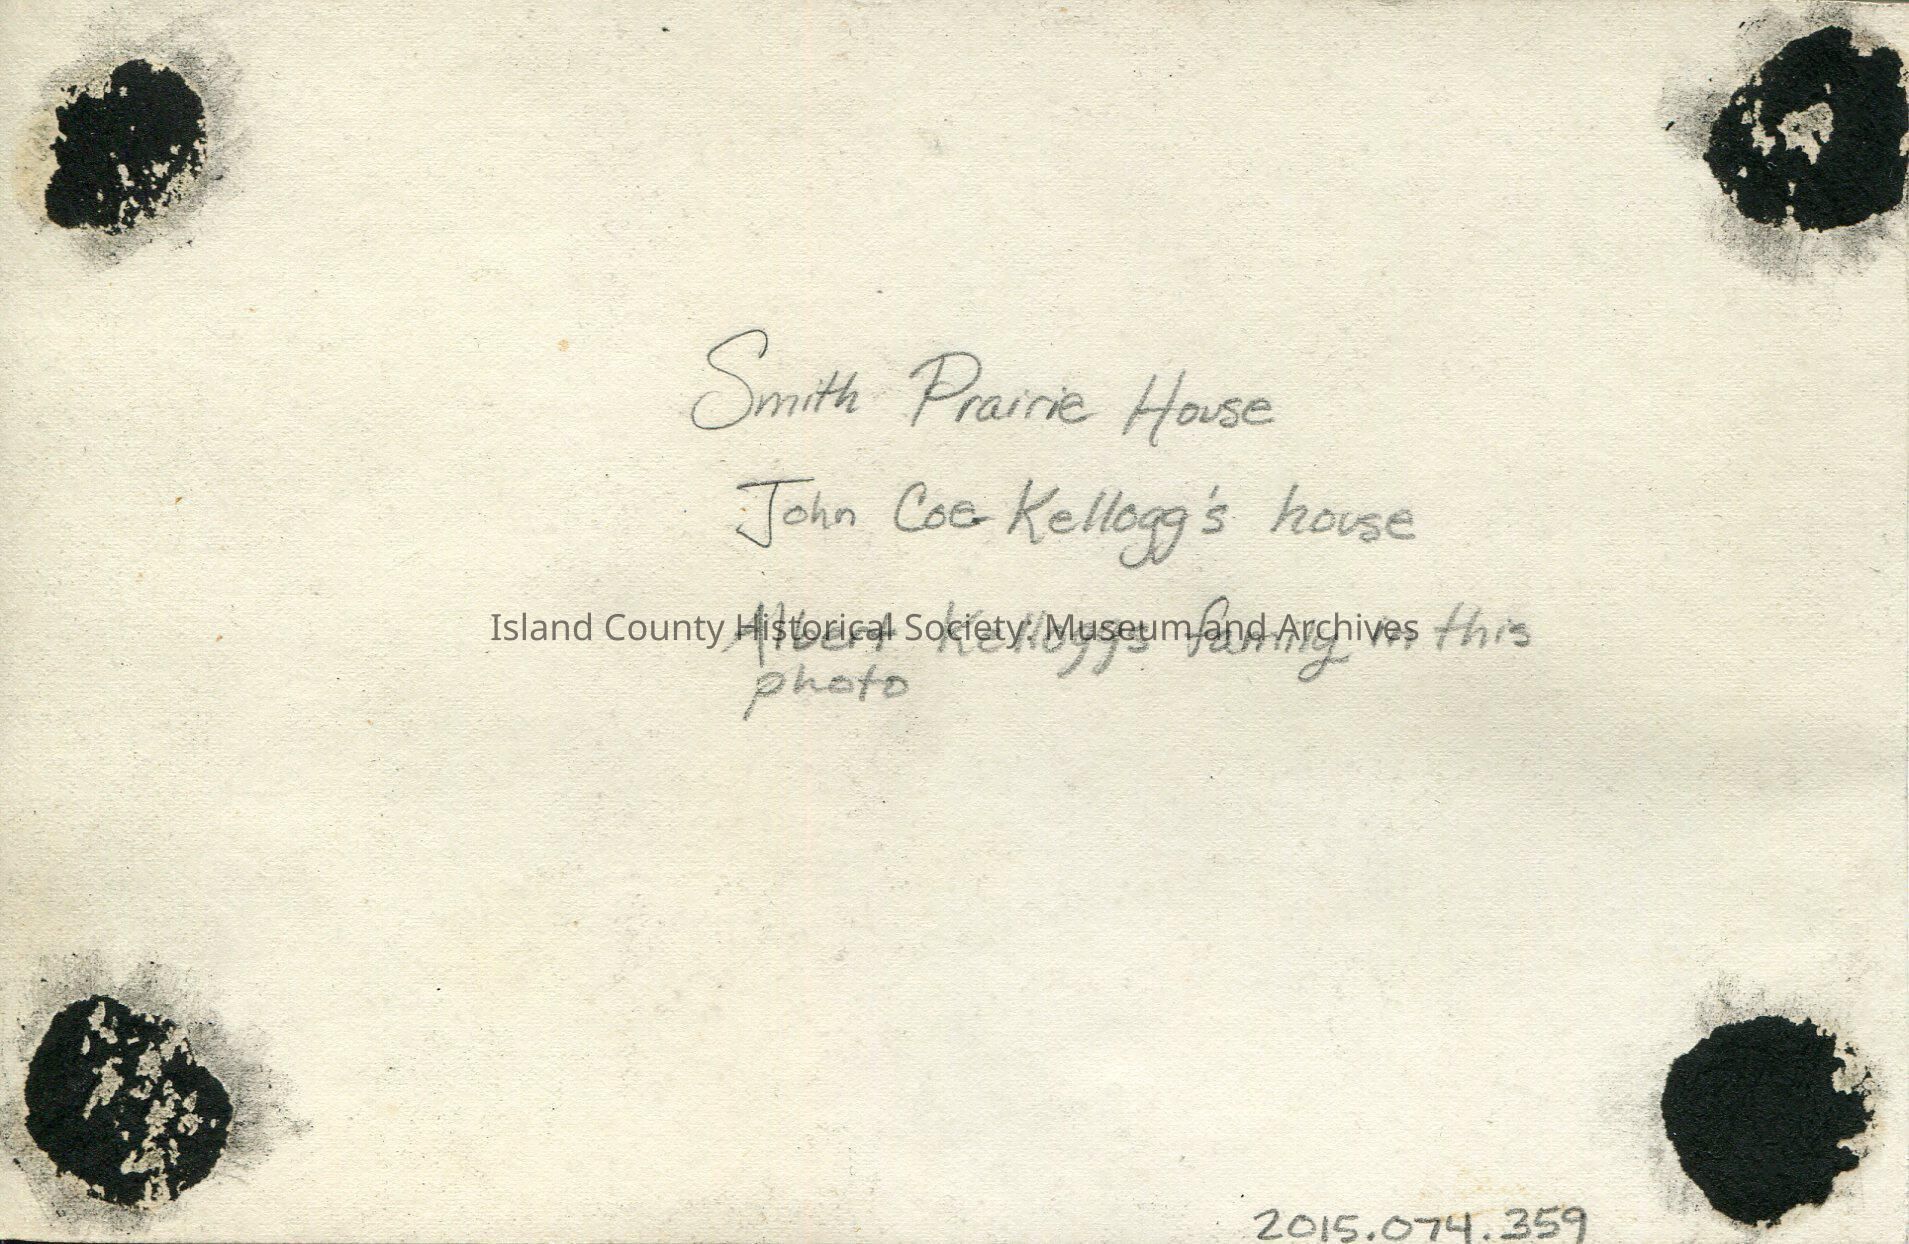 Smith Prairie House
John Coe Kellogg's house
Albert Kellogg's family in this
photo
Island County Historical Society: Museum and Archives
2015.074.359